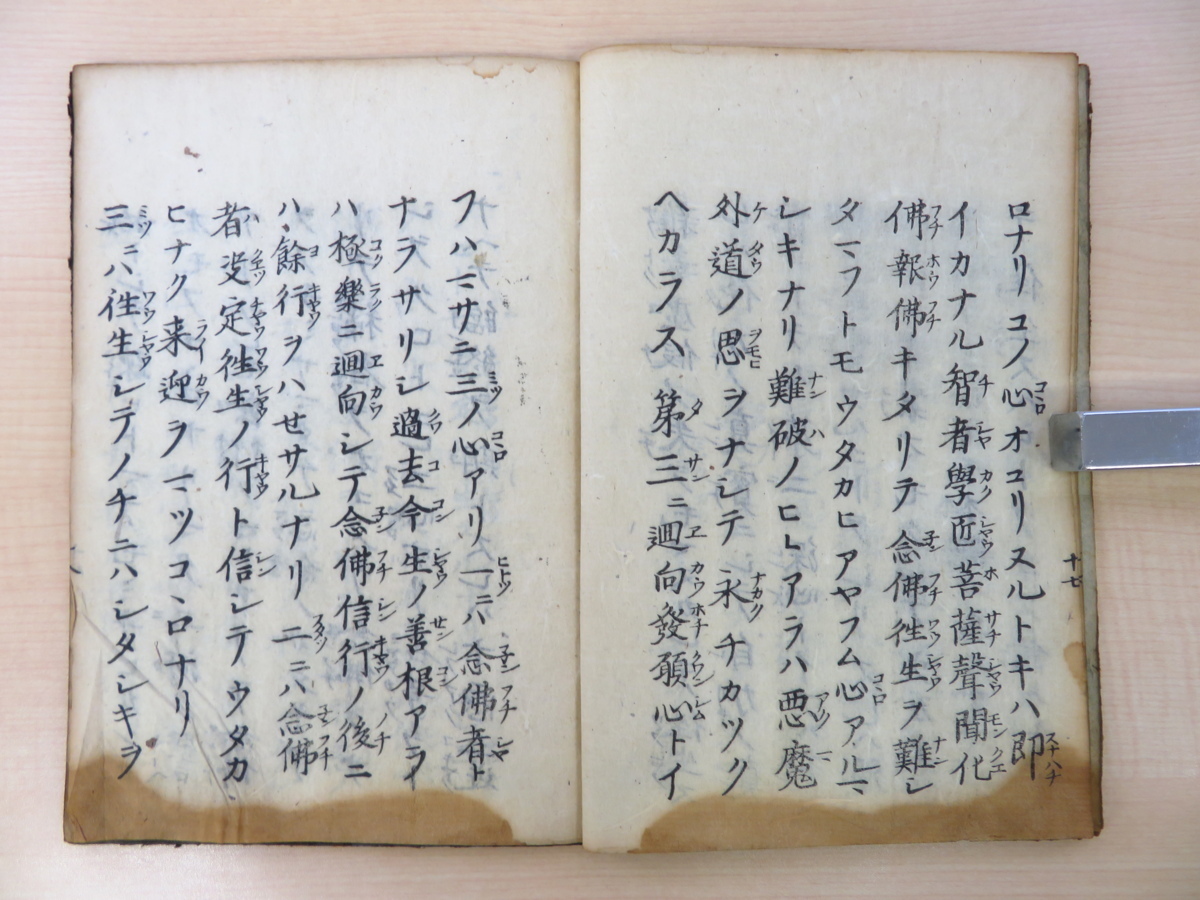 ロナリコノ心オコリヌルトキハ即
イカナル智者學匠菩薩聲聞化
佛報佛キタリテ念佛徃生ヲ難シ
タマフトモウタカヒアヤフム心アルマ
シキナリ難破ノヒトアラハ悪魔
外道ノ思ヲナシテ永チカツク
ヘカラス第三ニ廻向發願心トイ
十七
フハマサニ三ノ心アリ一ニハ念佛者ト
ナラサリシ過去今生ノ善根アライ
ハ極樂ニ廻向シテ念佛信行ノ後ニ
ハ餘行ヲハせサルナリ二ニハ念佛
者决定徃生ノ行ト信シテウタカ
ヒナク来迎ヲマツコヽロナリ
三ニハ徃生シテノチニハシタシキヲ